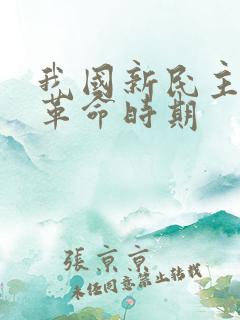 我國新民主
革命時期
張京京
未經同意禁止轉載